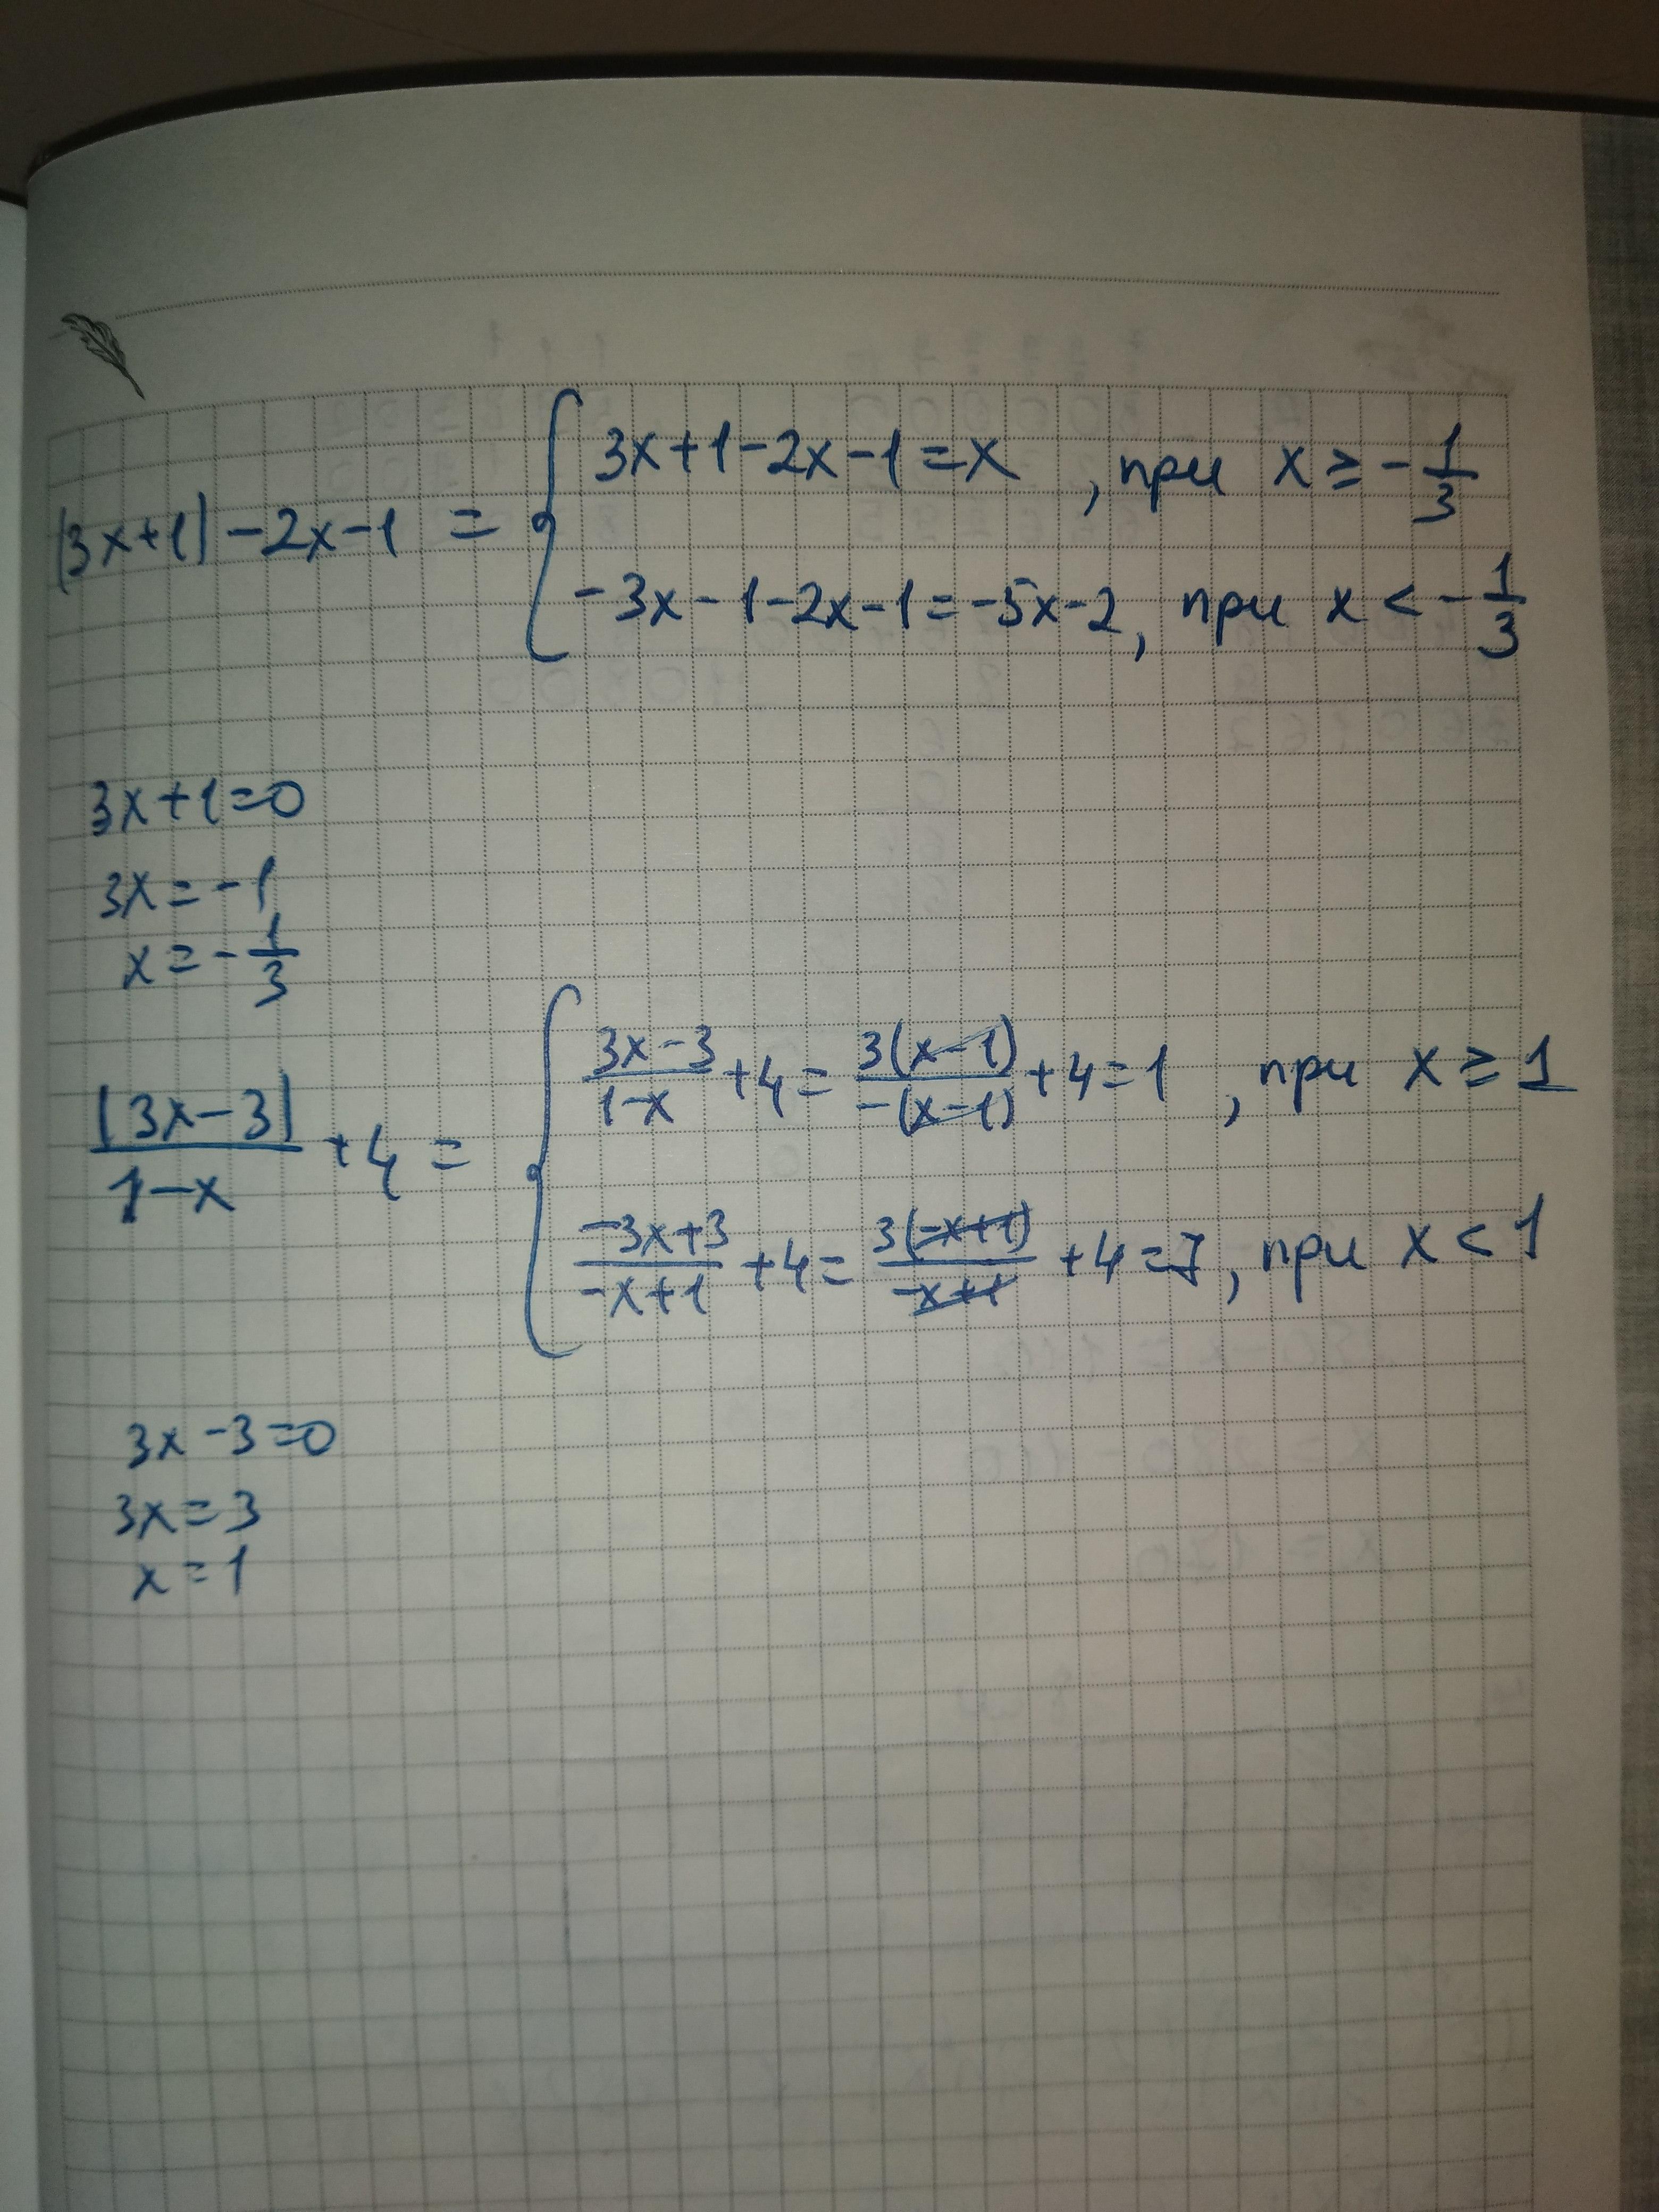 |3x+1|-2x-1 = { 3x+1-2x-1=x , при x ≥ -1/3
-3x-1-2x-1=-5x-2, при x < -1/3
3x+1=0
3x=-1
x=-1/3
|3x-3|/1-x +4 = { 3x-3/1-x +4= 3(x-1)/-(x-1) +4=1 , при x ≥ 1
-3x+3/-x+1 +4= 3(-x+1)/-x+1 +4=7, при x < 1
3x-3=0
3x=3
x=1